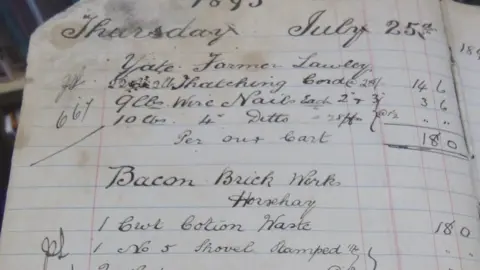 1895
Thursday July 25th
Yate Farmer Lawley
Thatching Cord 14 6
9 lbs Wire Nails Each 2 & 3 3 6
667
10 lbs 4" Ditto " "
Per our Cart 18 0
Bacon Brick Works
Horsehay
1 Cwt Cotton Waste 18 0
1 No 5 Shovel Stamped " "